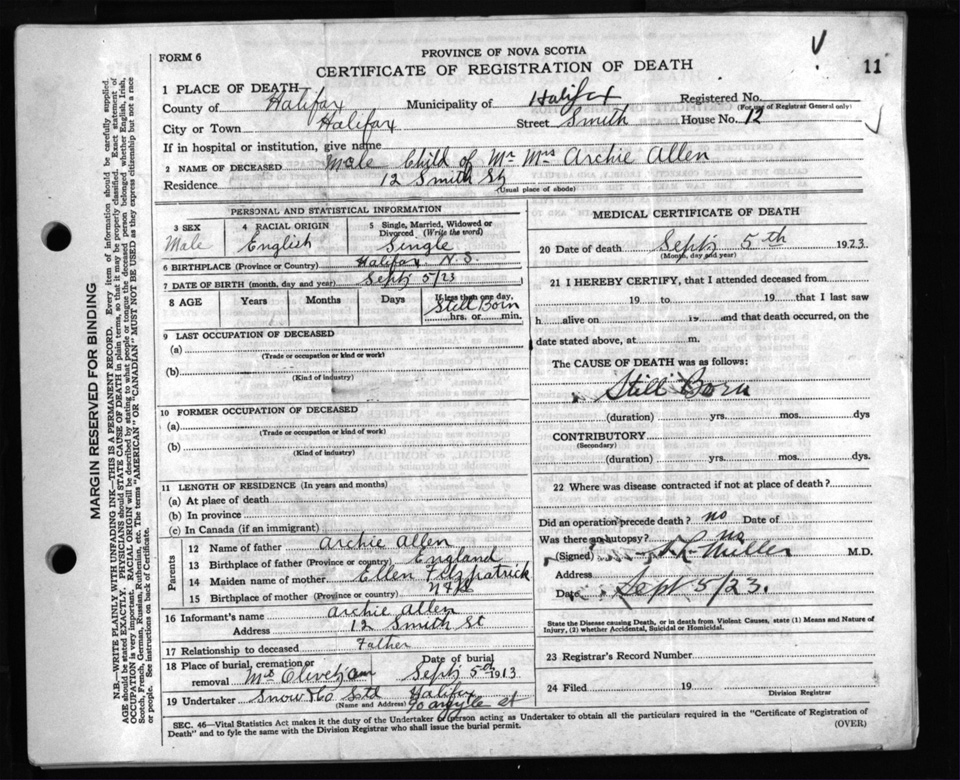 FORM 6
PROVINCE OF NOVA SCOTIA
CERTIFICATE OF REGISTRATION OF DEATH
11
1 PLACE OF DEATH
County of Halifax Municipality of Halifax Registered No.
(For use of Registrar General only)
City or Town Halifax Street Smith House No. 12
If in hospital or institution, give name
2 NAME OF DECEASED Male Child of Mr Mrs Archie Allen
Residence 12 Smith St
(Usual place of abode)
PERSONAL AND STATISTICAL INFORMATION
3 SEX 4 RACIAL ORIGIN 5 Single, Married, Widowed or Divorced (Write the word)
Male English Single
6 BIRTHPLACE (Province or Country) Halifax N.S.
7 DATE OF BIRTH (month, day and year) Sept 5/23
8 AGE Years Months Days If less than one day,
Still Born
hrs. or min.
9 LAST OCCUPATION OF DECEASED
(a)
(Trade or occupation or kind or work)
(b)
(Kind of industry)
10 FORMER OCCUPATION OF DECEASED
(a)
(Trade or occupation or kind of work)
(b)
(Kind of industry)
11 LENGTH OF RESIDENCE (In years and months)
(a) At place of death
(b) In province
(c) In Canada (if an immigrant)
Parents
12 Name of father Archie Allen
13 Birthplace of father (Province or country) England
14 Maiden name of mother Ellen Fitzpatrick
15 Birthplace of mother (Province or country)
16 Informant's name Archie Allen
Address 12 Smith St
17 Relationship to deceased Father
18 Place of burial, cremation or removal Mt Olivet Date of burial Sept 5th 1913
19 Undertaker Snow & Co Ltd Halifax
(Name and Address) 90 argyle st
MEDICAL CERTIFICATE OF DEATH
20 Date of death Sept 5th 1923.
(Month, day and year)
21 I HEREBY CERTIFY, that I attended deceased from
19 to 19 that I last saw
h alive on 19 and that death occurred, on the
date stated above, at m.
The CAUSE OF DEATH was as follows:
Still Born
(duration) yrs. mos. dys
CONTRIBUTORY
(Secondary)
(duration) yrs. mos. dys.
22 Where was disease contracted if not at place of death?
Did an operation precede death? no Date of
Was there an autopsy? no
(Signed) Miller M.D.
Address
Date Sept 5/23.
State the Disease causing Death, or in death from Violent Causes, state (1) Means and Nature of
Injury, (2) whether Accidental, Suicidal or Homicidal.
23 Registrar's Record Number
24 Filed 19
Division Registrar
SEC. 46—Vital Statistics Act makes it the duty of the Undertaker or person acting as Undertaker to obtain all the particulars required in the "Certificate of Registration of
Death" and to fyle the same with the Division Registrar who shall issue the burial permit.
(OVER)
MARGIN RESERVED FOR BINDING
N.B.—WRITE PLAINLY WITH UNFADING INK—THIS IS A PERMANENT RECORD. Every item of information should be carefully supplied.
AGE should be stated EXACTLY. PHYSICIANS should STATE CAUSE OF DEATH in plain terms, so that it may be properly classified. Exact statement of
OCCUPATION is very important. RACIAL ORIGIN will be described by stating to what people or tongue the deceased person belonged whether English, Irish,
Scotch, French, German, Russian, Ruthenian, etc. The terms "AMERICAN" OR "CANADIAN" MUST NOT BE USED as they express citizenship but not a race
or people. See instructions on back of Certificate.